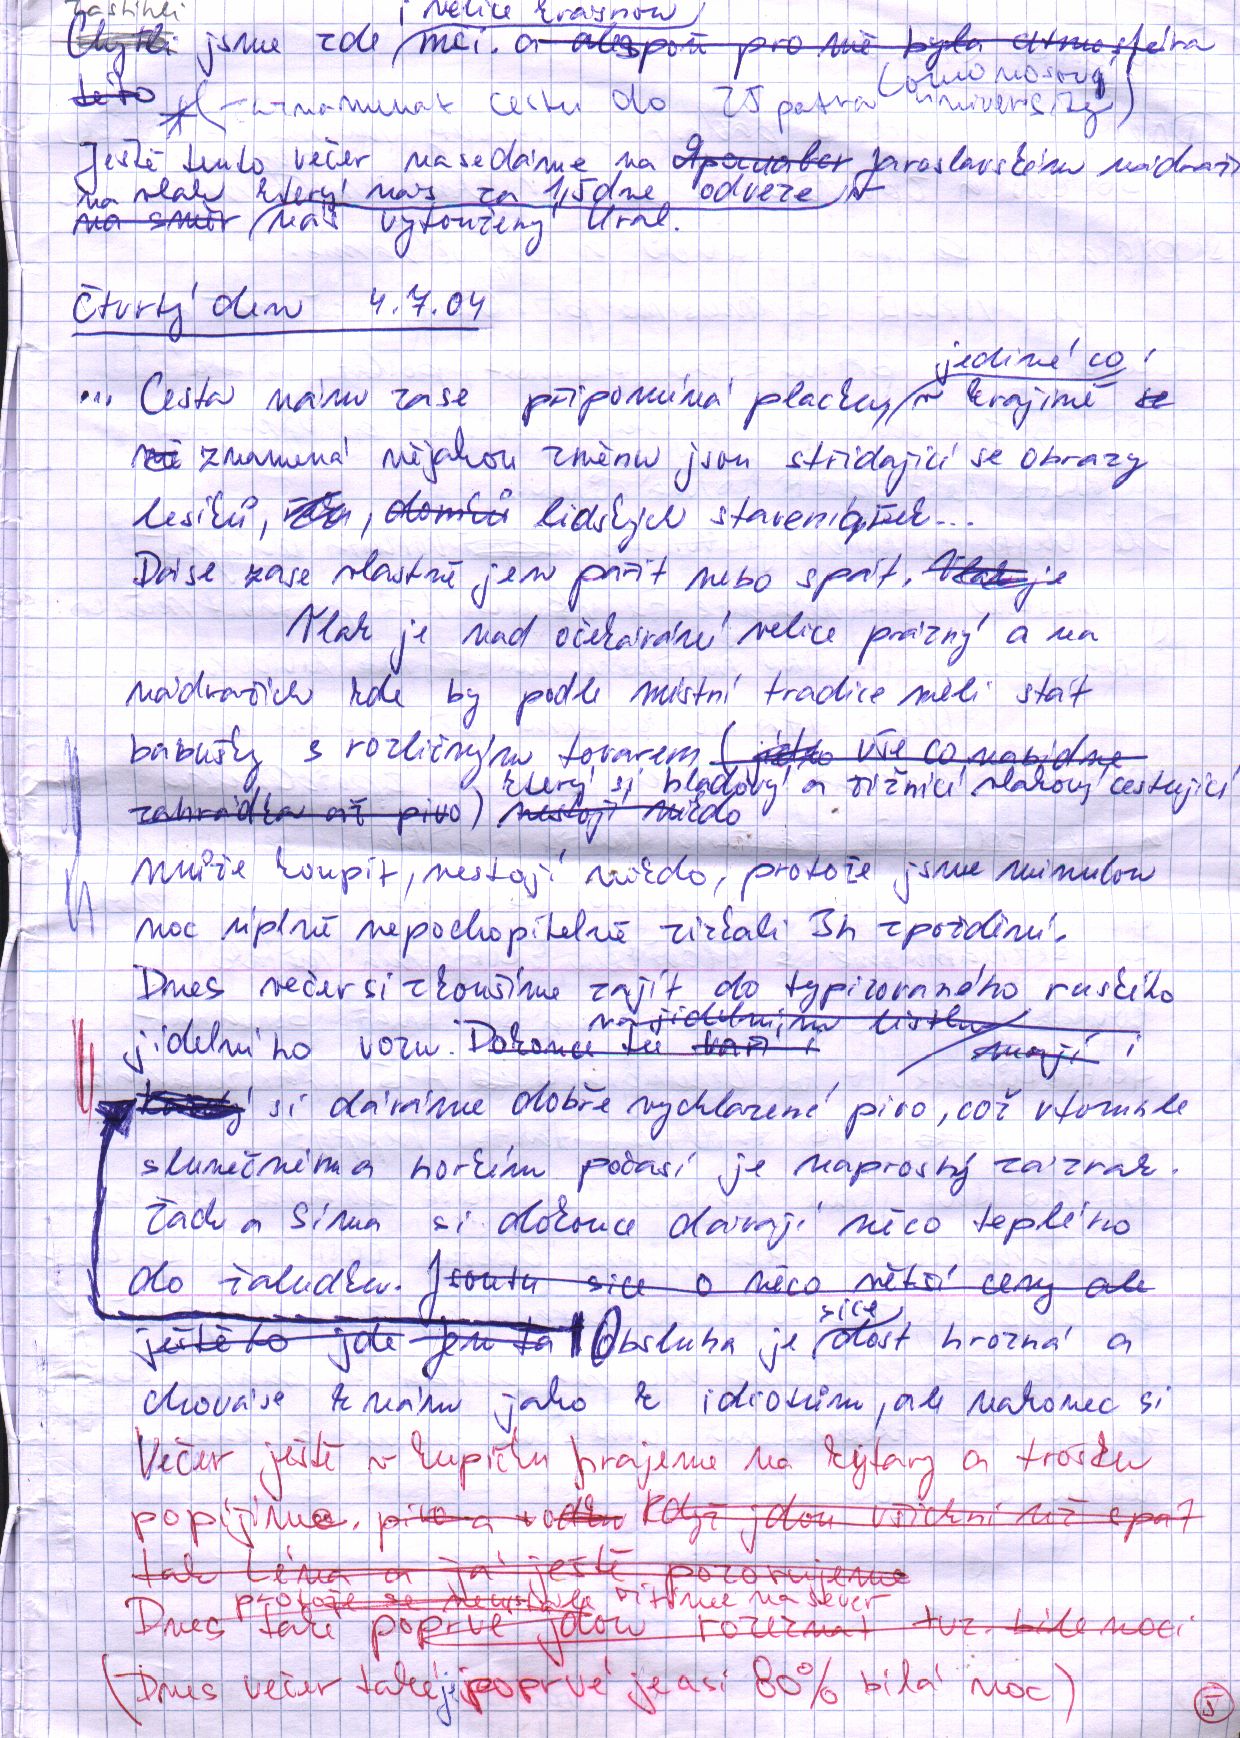 zastihli i velice krásnou
Chytli jsme zde mči. a alespoň pro mě byla atmosféra
této (- zaznamenat cestu do 25 patra (Lomonosovy university)
Ještě tento večer nasedáme na Jaroslavském nádraží
na vlak který nás za 1,5 dne odveze
na směr náš vytoužený Ural.
Čtvrtý den 4.7.04
jediné co
... Cesta nám zase připomíná placky, v krajině se
ně znamená nějakou změnu jsou střídající se obrazy
lesíků, řek, domků lidských stavení, řek...
Dá se zase vlastně jen pařit nebo spát. Vlak je
Vlak je nad očekávání velice prázný a na
nádražích kde by podle místní tradice měli stát
babušky s rozličným tovarem (jídlo vše co nabídne
který si hladový a žíznící vlakový cestující
zahrádka až pivo) nestojí nikdo
může koupit, nestojí nikdo, protože jsme minulou
noc úplně nepochopitelně získali 3h zpoždění.
Dnes večer si zkoušíme zajít do typizovaného ruského
na jídelním lístku
jídelního vozu. Dokonce tu vaří i mají i
si dáváme dobře vychlazené pivo, což v tomhle
slunečném a horkém počasí je naprostý zázrak.
Žach a Sima si dokonce dávají něco teplého
do žaludku. Jsou tu sice o něco větší ceny ale
sice
ještě to jde jen ta Obsluha je dost hrozná a
chová se k nám jako k idiotům, ale nakonec si
Večer ještě v kupíčku hrajeme na kytary a trošku
popíjíme. pivo a vodku Když jdou všichni už spát
tak Léna a já ještě pozorujeme
protože se neustále řítíme na sever
Dnes také poprvé jdou rozeznat tzv. bílé noci
(Dnes večer také je poprvé je asi 80% bílá noc)
5